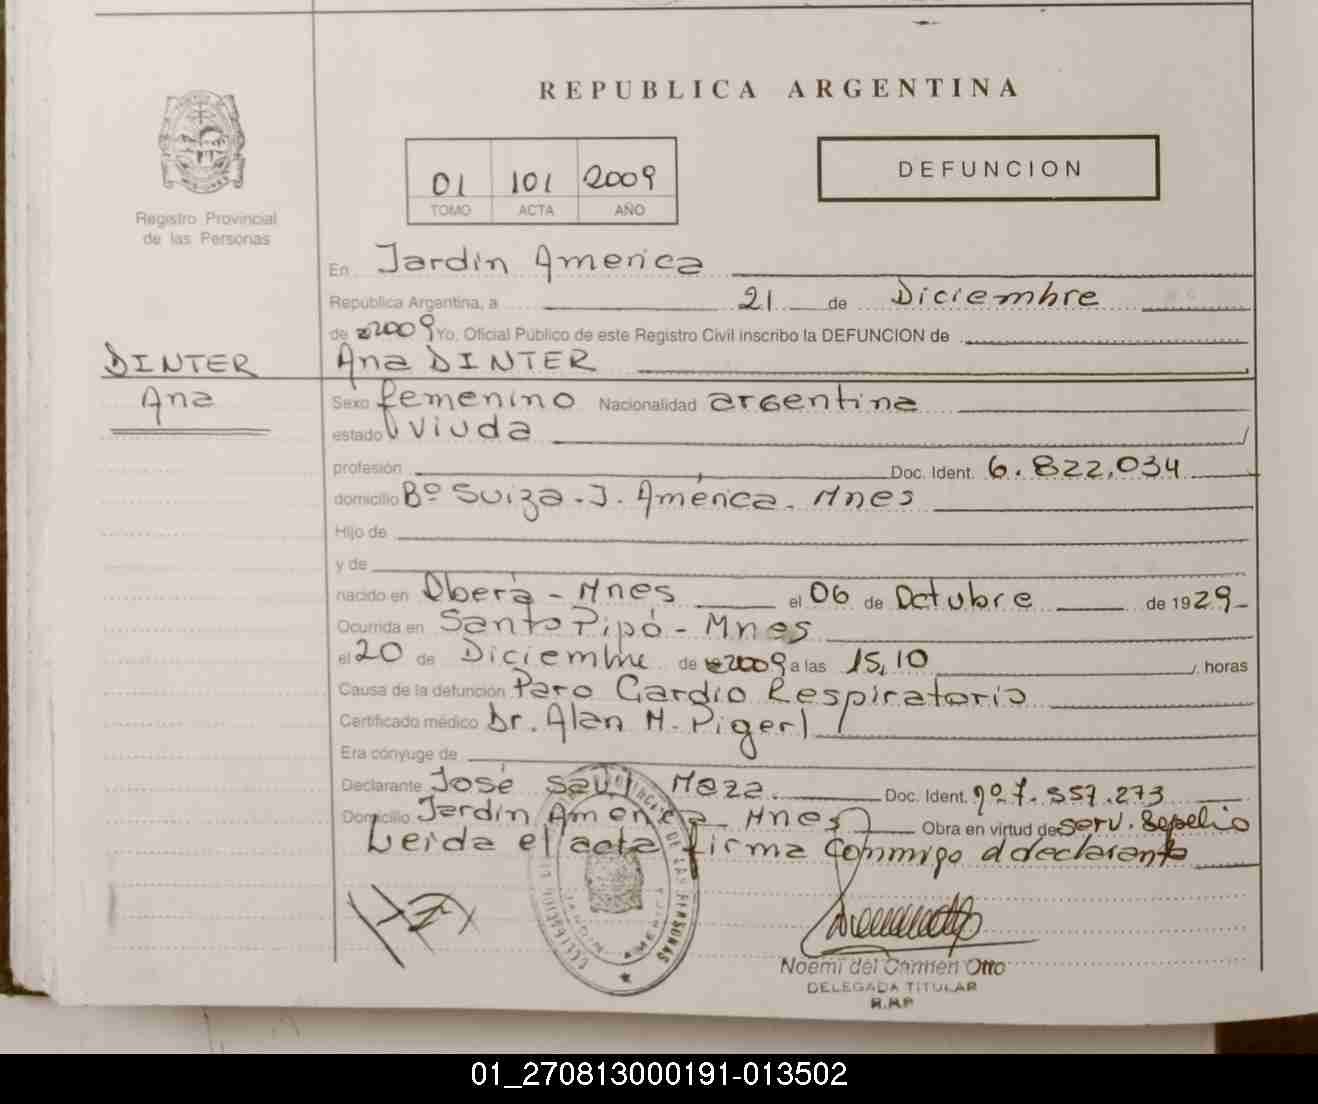 REPUBLICA ARGENTINA
01 101 2009
TOMO ACTA AÑO
DEFUNCION
Registro Provincial
de las Personas
En Jardín America
República Argentina, a 21 de Diciembre
de 2009 Yo, Oficial Público de este Registro Civil inscribo la DEFUNCION de
DINTER
Ana
Ana DINTER
Sexo femenino Nacionalidad argentina
estado viuda
profesión Doc. Ident. 6.822.034
domicilio Bº Suiza - J. América. Mnes
Hijo de
y de
nacido en Oberá - Mnes el 06 de Octubre de 1929
Ocurrida en Santo Pipó - Mnes
el 20 de Diciembre de 2009 a las 15,10 horas
Causa de la defunción Paro Cardio Respiratorio
Certificado médico Dr. Alan H. Pigerl
Era cónyuge de
Declarante José Saul Meza Doc. Ident. Nº 7.557.273
Domicilio Jardín America - Mnes Obra en virtud de serv. Sepelio
Leida el acta firma conmigo el declarante
JARDIN AMERICA
Noemí del Carmen Otto
DELEGADA TITULAR
R.R.P
01_270813000191-013502